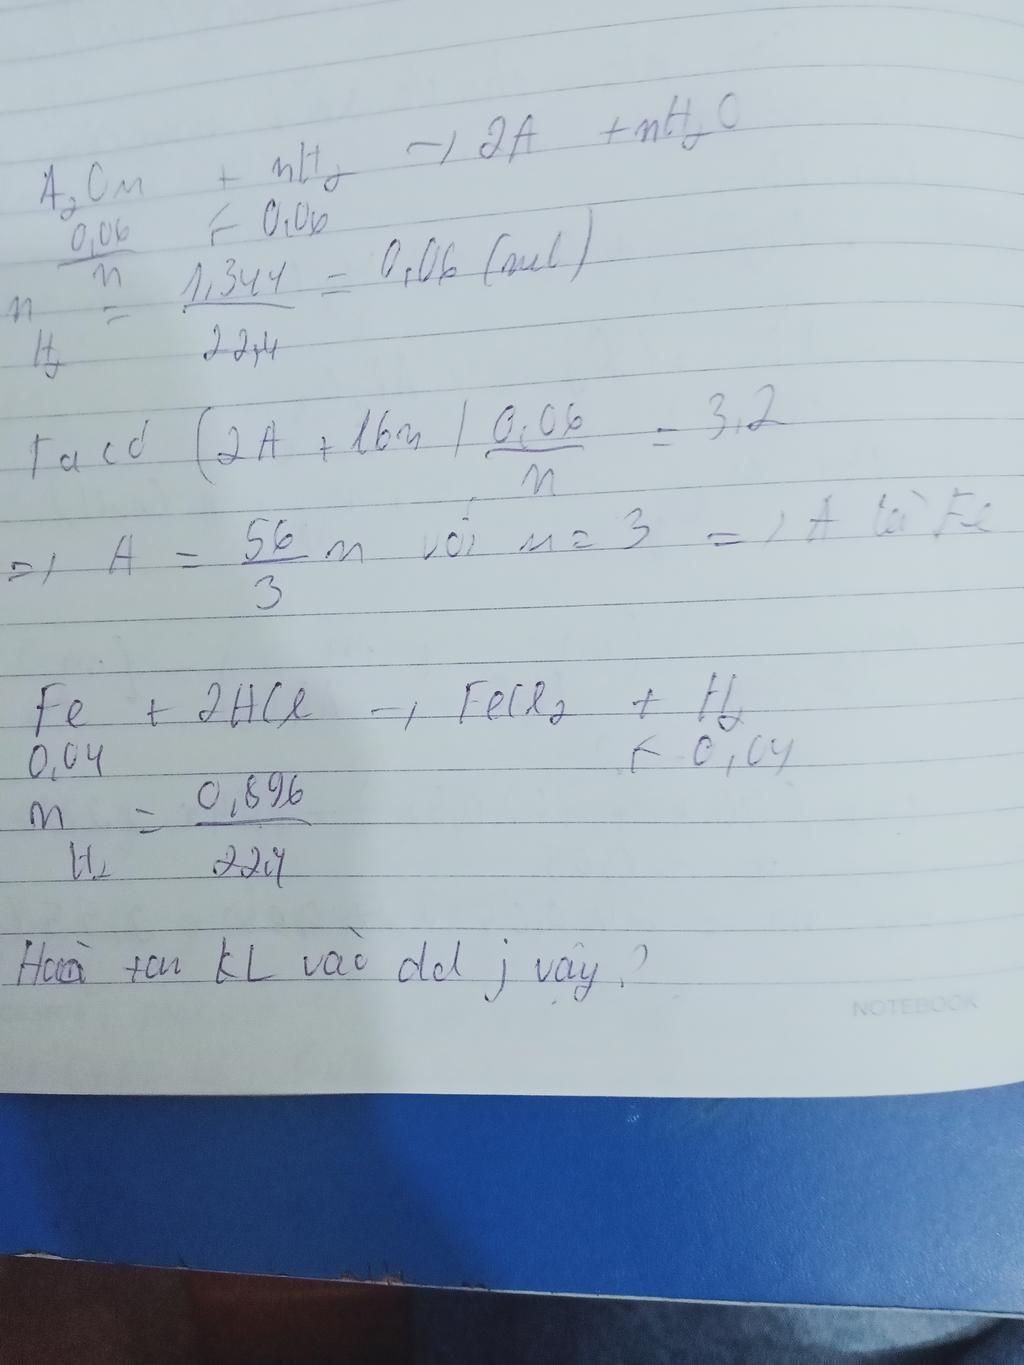 A₂On + nH₂ → 2A + nH₂O
0,06/n ← 0,06
n H₂ = 1,344/22,4 = 0,06 (mol)
Ta có (2A + 16n) 0,06/n = 3,2
=> A = 56/3 n với n = 3 => A là Fe
Fe + 2HCl → FeCl₂ + H₂
0,04 ← 0,04
n H₂ = 0,896/22,4
Hoà tan KL vào dd j vậy?
NOTEBOOK